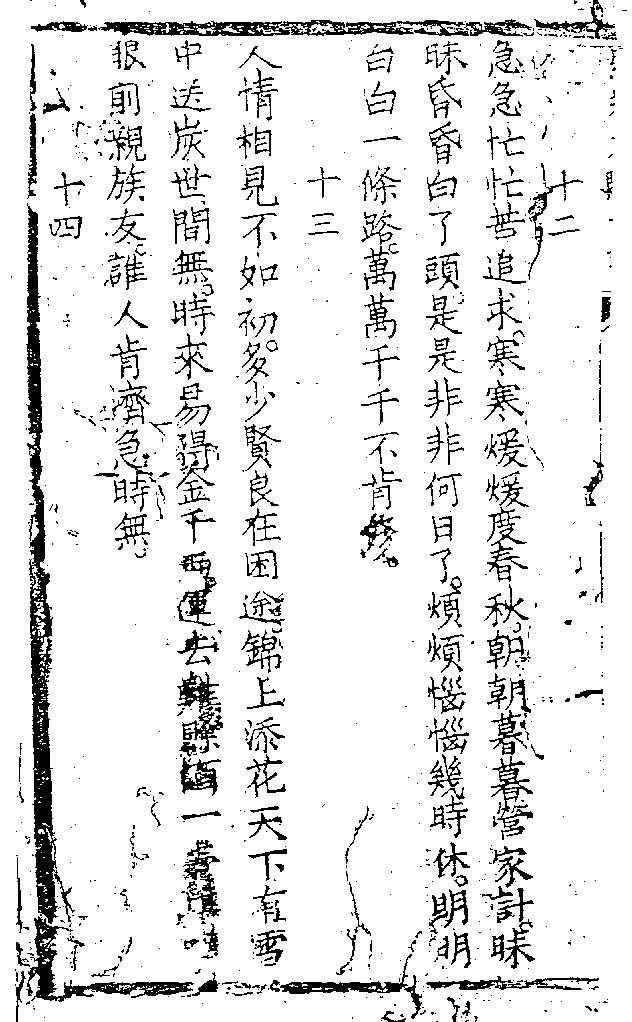 十二
急急忙忙苦追求。寒寒煖煖度春秋。朝朝暮暮營家計。昧
昧昏昏白了頭是是非非何日了。煩煩惱惱幾時休。明明
白白一條路。萬萬千千不肯
十三
人情相見不如初。多少賢良在困途。錦上添花天下有雪
中送炭世間無。時來易得金千兩運去難賒酒一壺
眼前親族友。誰人肯濟急時無
十四